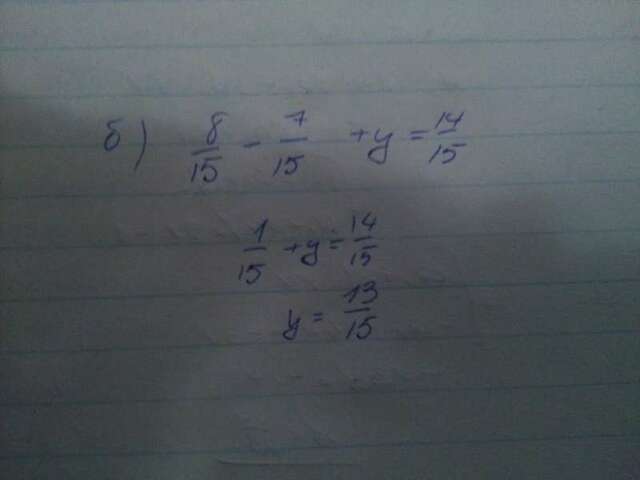 б) 8/15 - 7/15 + y = 14/15
1/15 + y = 14/15
y = 13/15